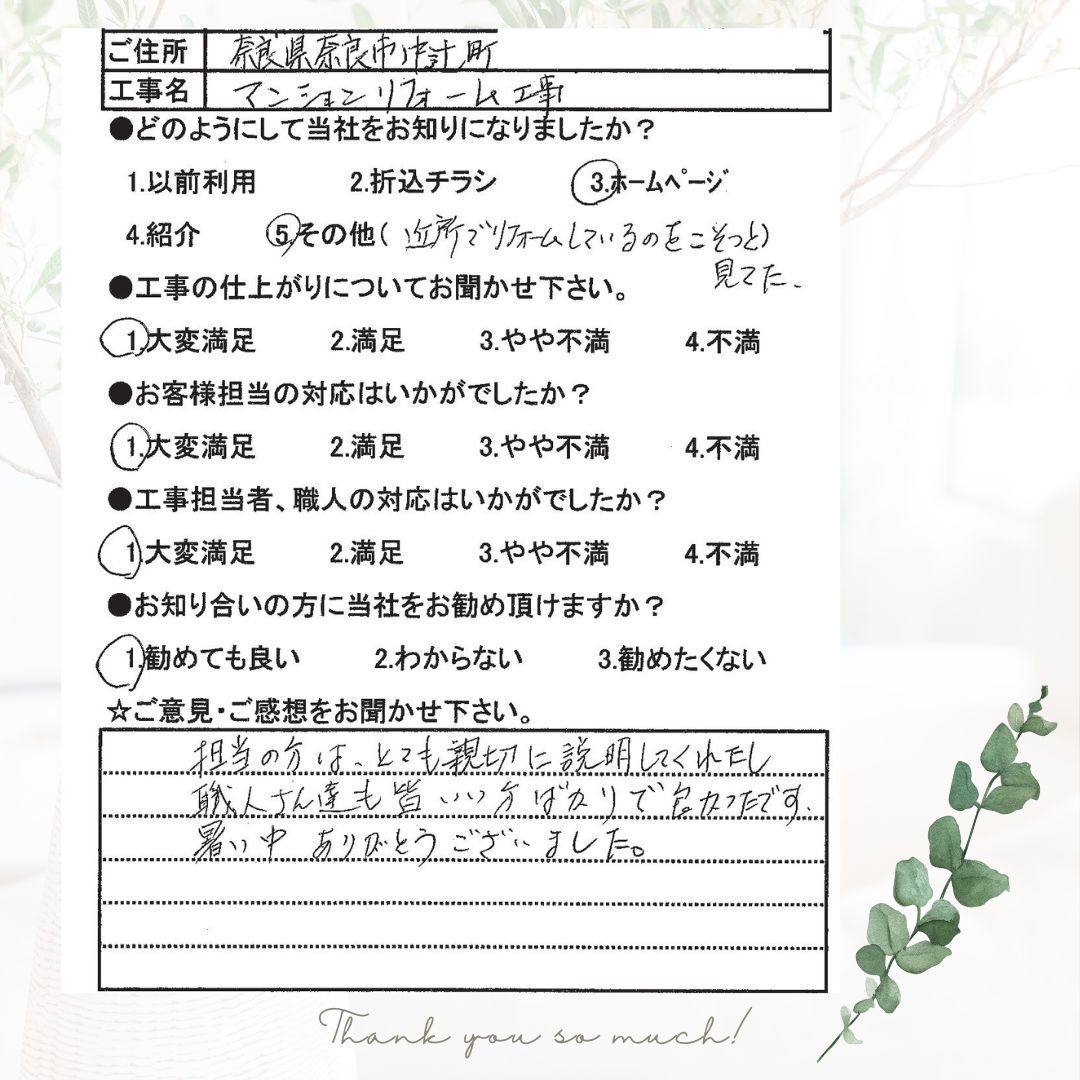 ご住所 奈良県奈良市中辻町
工事名 マンションリフォーム工事
●どのようにして当社をお知りになりましたか？
1.以前利用 2.折込チラシ 3.ホームページ
4.紹介 5.その他( 近所でリフォームしているのをこそっと)
見てた.
●工事の仕上がりについてお聞かせ下さい。
1.大変満足 2.満足 3.やや不満 4.不満
●お客様担当の対応はいかがでしたか？
1.大変満足 2.満足 3.やや不満 4.不満
●工事担当者、職人の対応はいかがでしたか？
1.大変満足 2.満足 3.やや不満 4.不満
●お知り合いの方に当社をお勧め頂けますか？
1.勧めても良い 2.わからない 3.勧めたくない
☆ご意見・ご感想をお聞かせ下さい。
担当の方は、とても親切に説明してくれたし
職人さん達も皆いい方ばかりで良かったです.
暑い中 ありがとうございました。
Thank you so much!